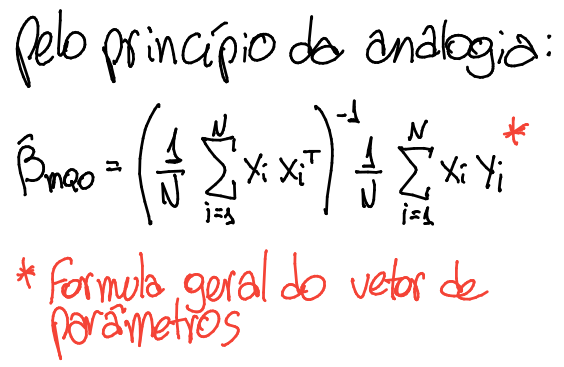 pelo princípio da analogia:
β̂mqo = (1/N ∑_{i=1}^{N} xi xi^T)^{-1} 1/N ∑_{i=1}^{N} xi yi *
* Formula geral do vetor de
parâmetros